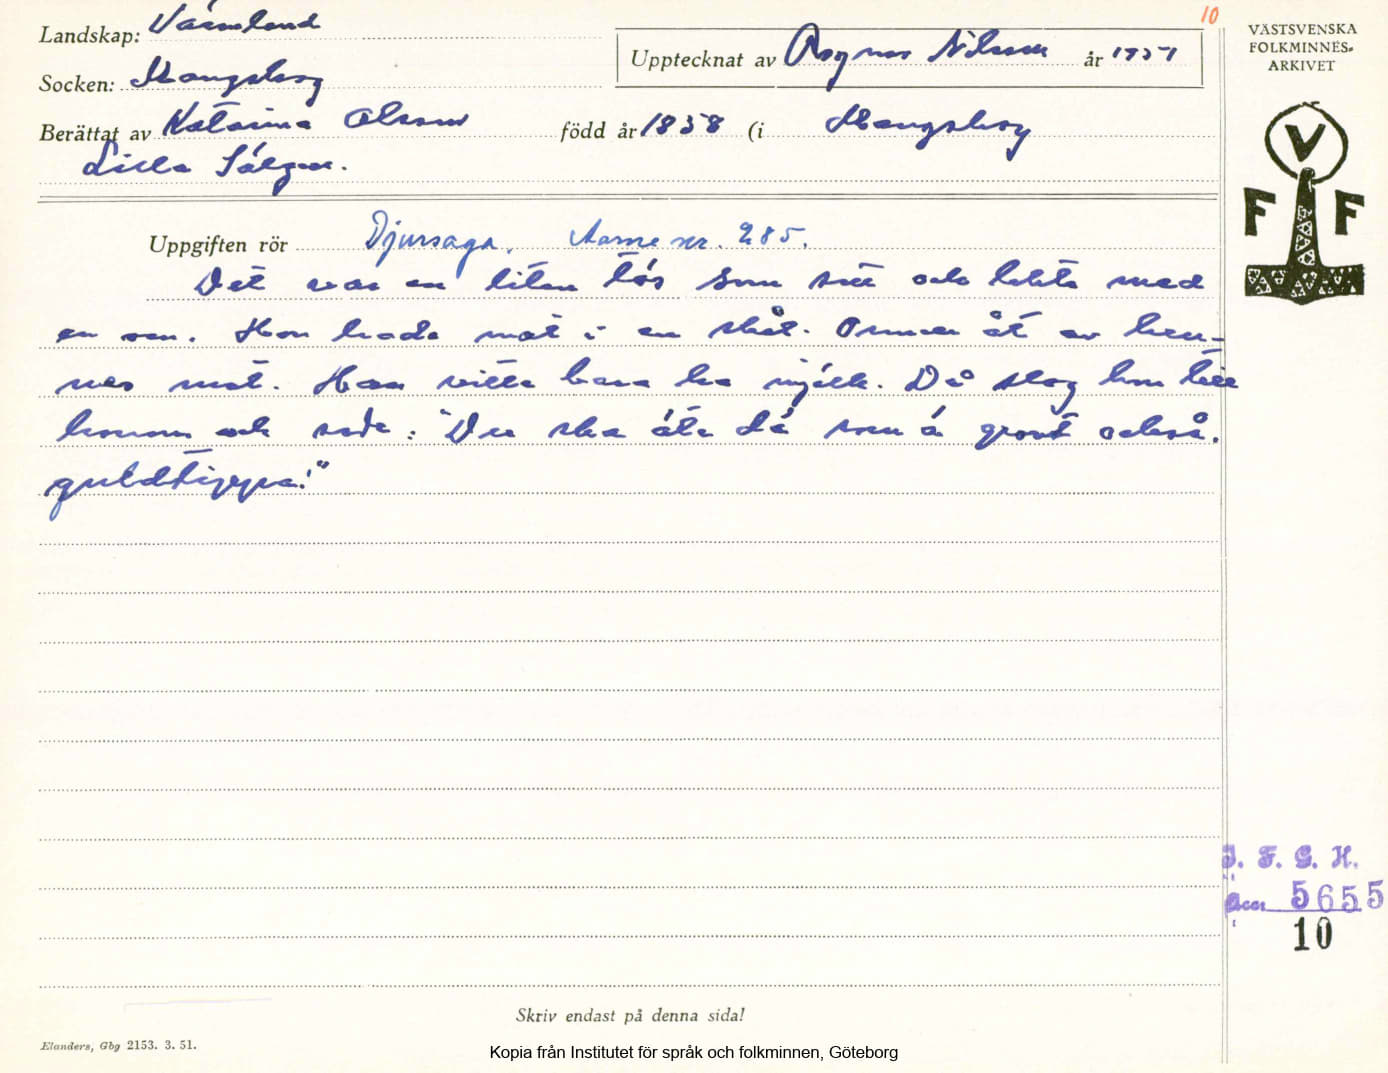 10
Landskap: Värmland
Upptecknat av Ragnar Nilsson år 1951
Socken: Mangskog
Berättat av Katarina Olsson född år 1858 (i Mangskog
Lilla Sälgen.
Uppgiften rör Djursaga. Aarne nr. 285.
Det var en liten tös som satt och lekte med
en orm. Hon hade mat i en skål. Ormen åt av hen-
nes mat. Han ville bara ha mjölk. Då slog hon till
honom och sade: "Du ska äta dä som ä grovt också,
guldtippa!"
VÄSTSVENSKA
FOLKMINNES-
ARKIVET
V
F F
I. F. G. H.
Acc. 5655
10
Skriv endast på denna sida!
Elanders, Gbg 2153. 3. 51.
Kopia från Institutet för språk och folkminnen, Göteborg